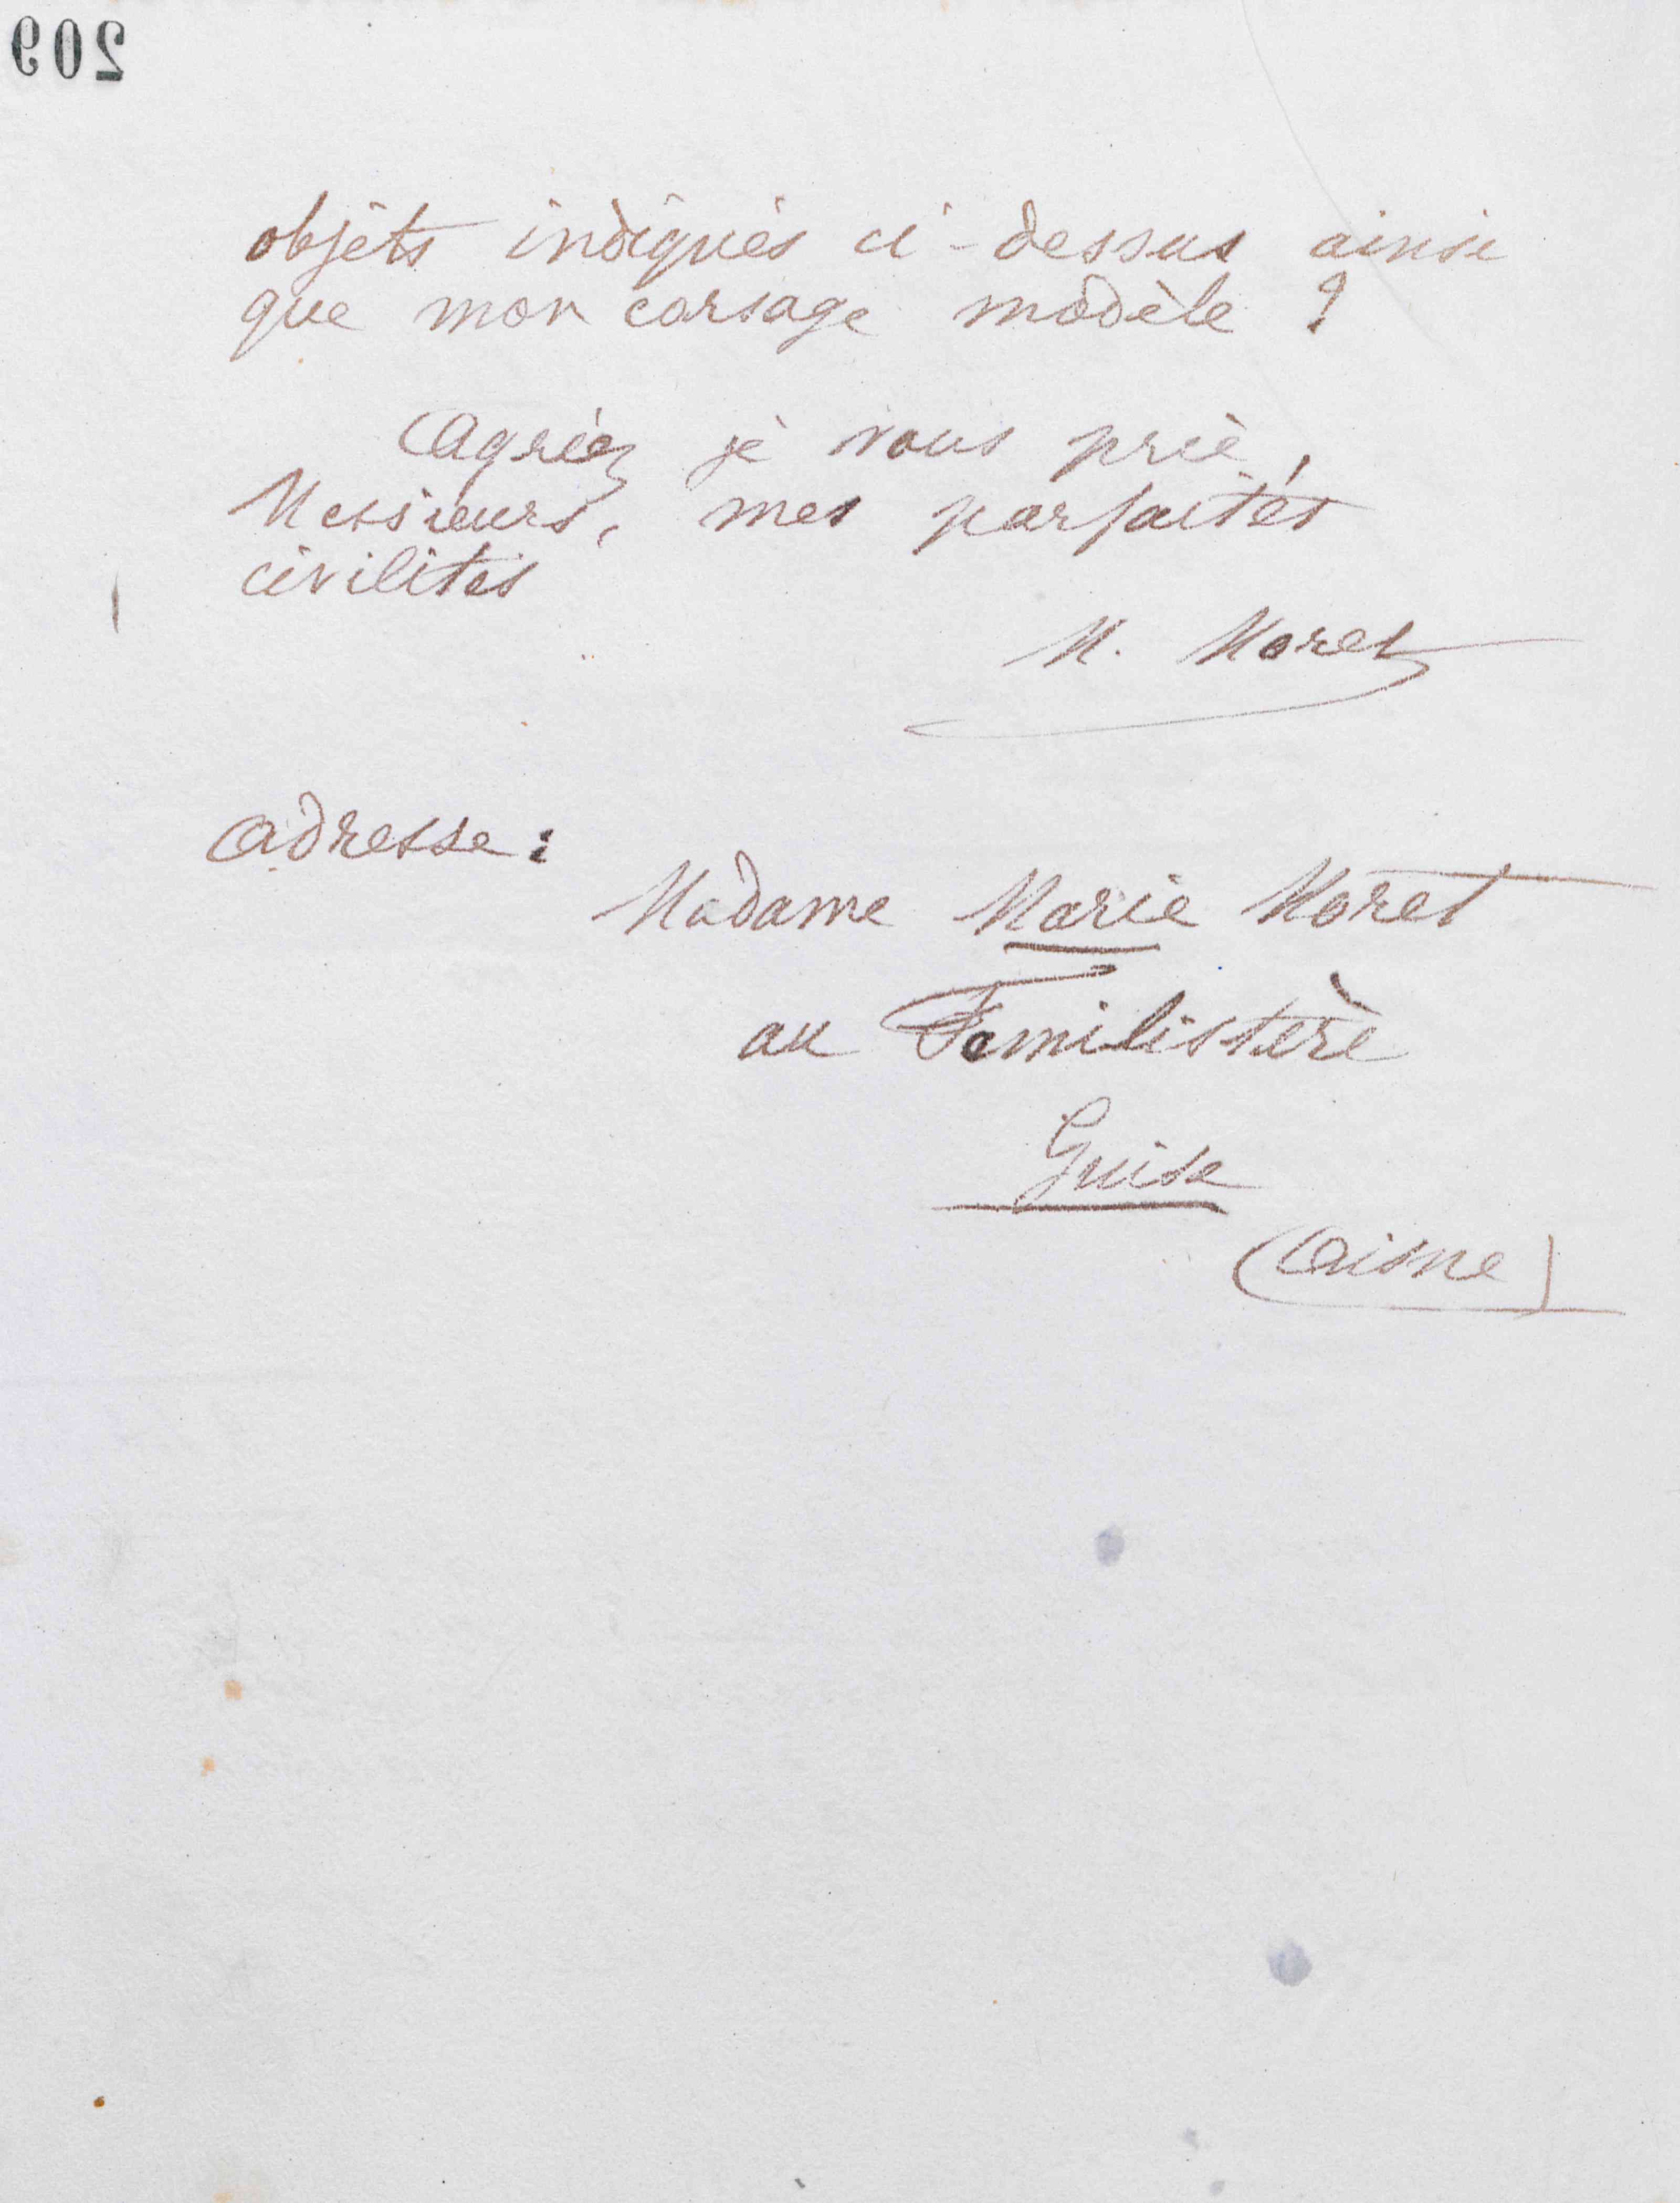 209
objets indiqués ci-dessus ainsi
que mon corsage modèle ?
Agréez je vous prie,
Messieurs, mes parfaites
civilités
M. Moret
Adresse :
Madame Marie Moret
au Familistère
Guise
(Aisne)